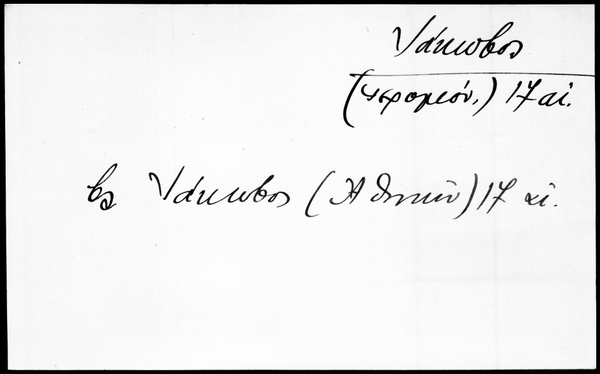 Ἰάκωβος
(ἱερομόν.) 17 αἰ.
βλ Ἰάκωβος (Ἀθηνῶν) 17 αἰ.